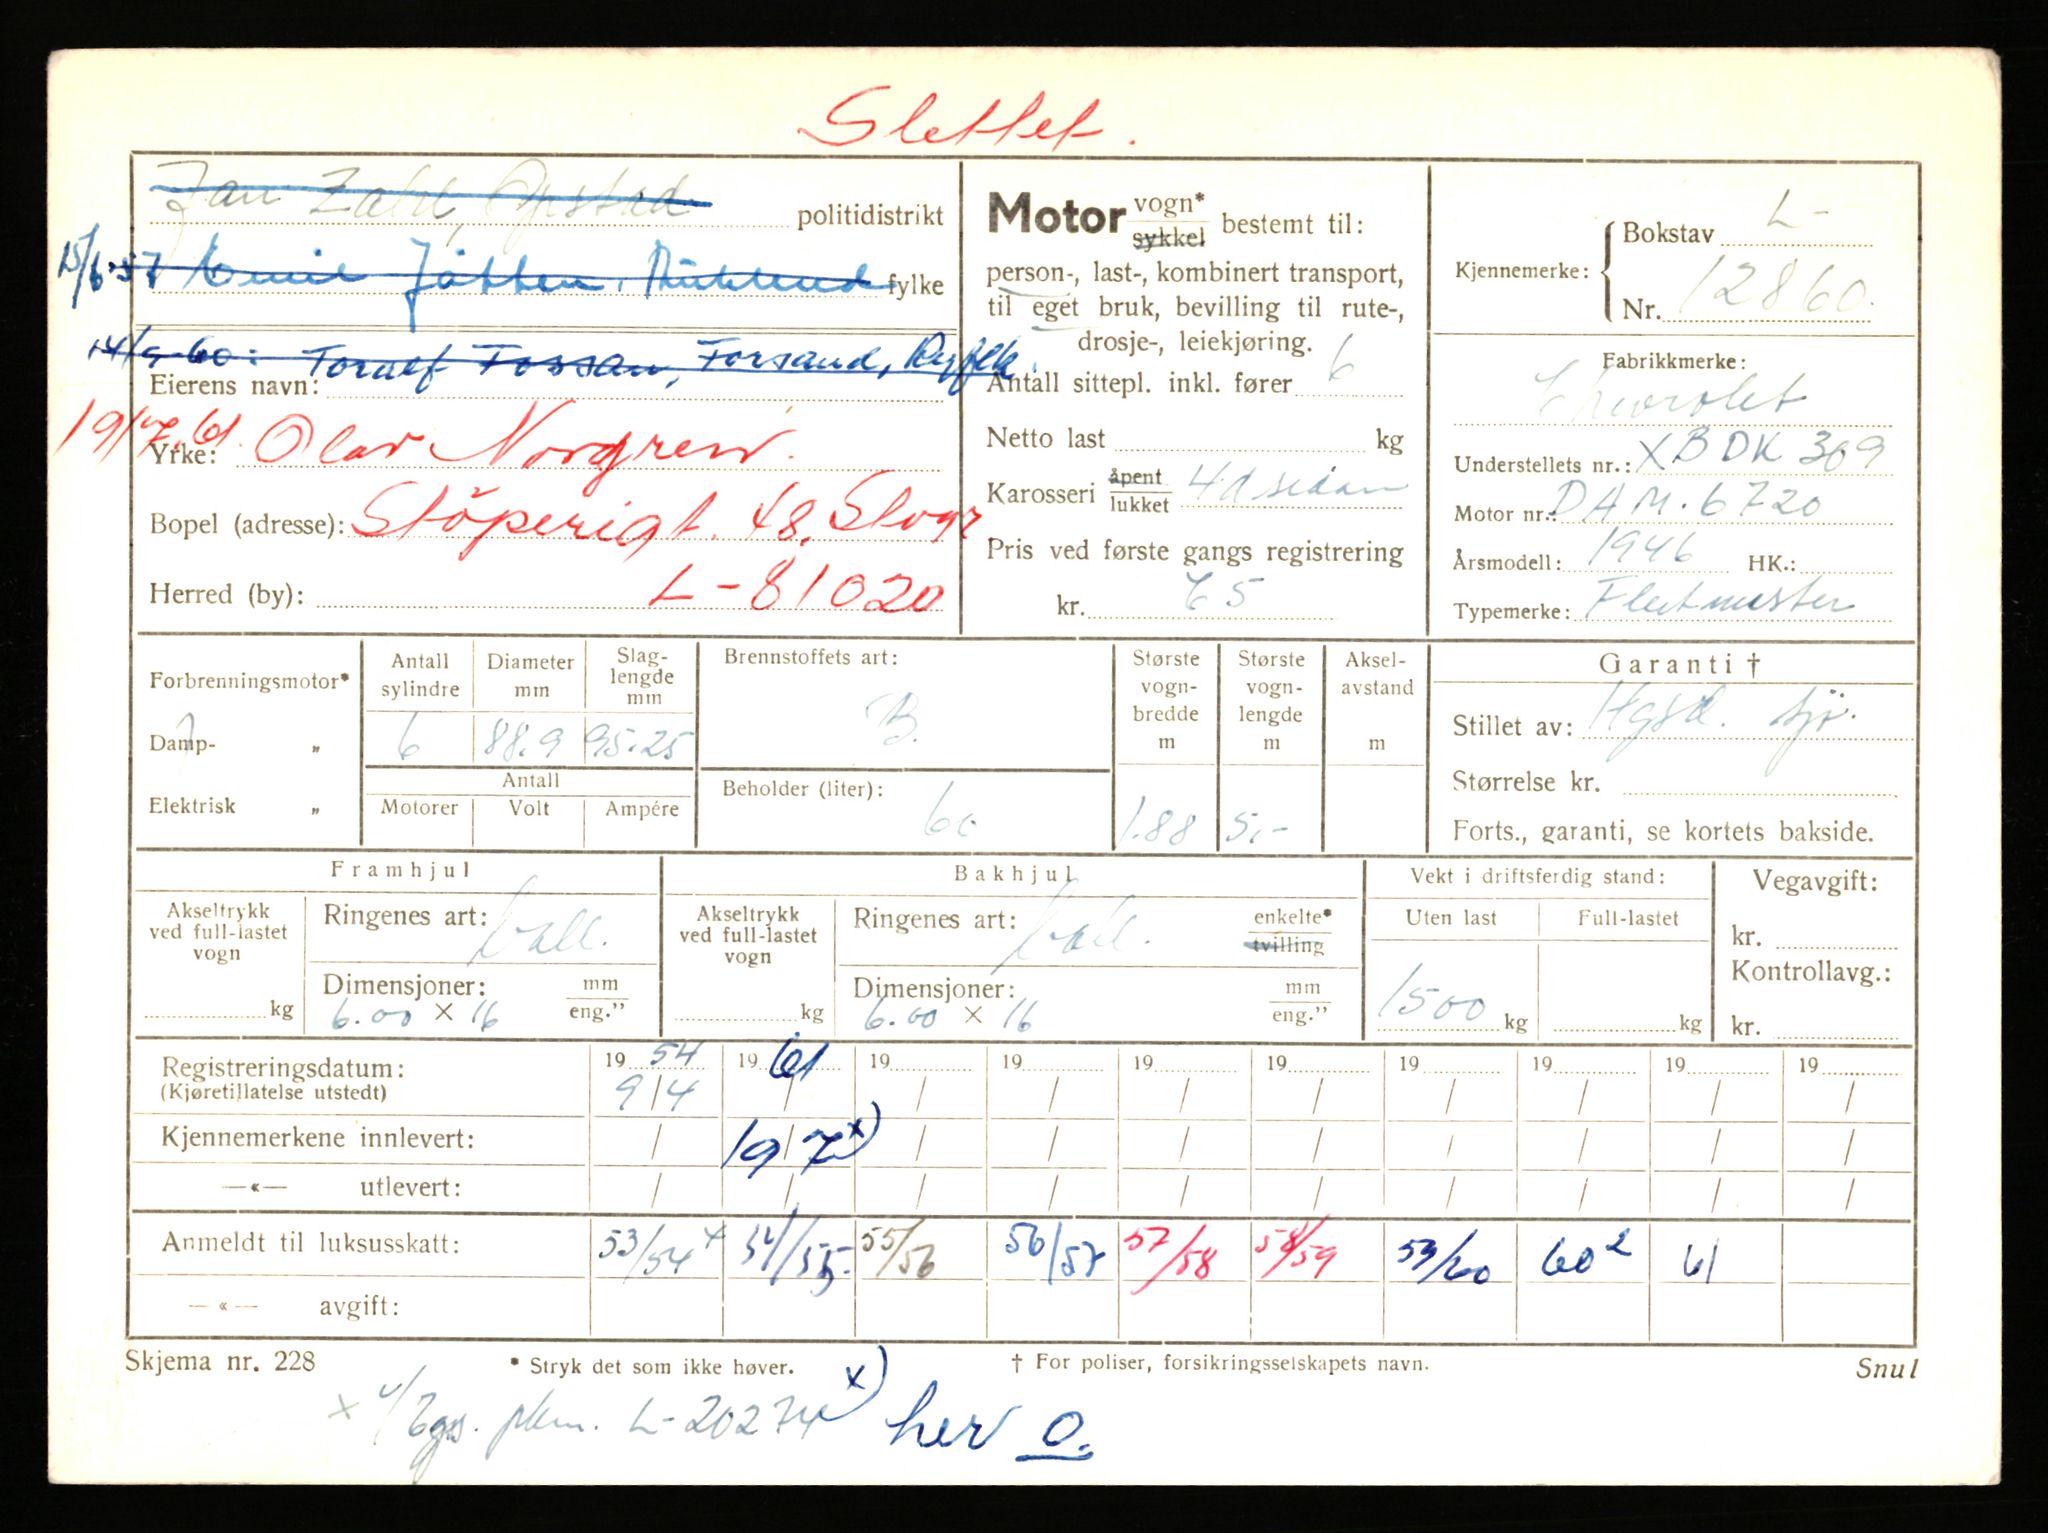 Slettet.
Jan Zahl, Opstad politidistrikt
15/6-57 Emil Jåtten, fylke
14/9-60: Tornef Fossan, Forsand, Ryfylke.
Eierens navn:
19/7.61. Olav Norgren.
Yrke:
Bopel (adresse): Støperigt. 48, Stvgr
Herred (by): L-81020
Motor vogn* sykkel bestemt til:
person-, last-, kombinert transport,
til eget bruk, bevilling til rute-,
drosje-, leiekjøring.
Antall sittepl. inkl. fører 6
Netto last kg
Karosseri åpent lukket 4d sedan
Pris ved første gangs registrering
kr.
Kjennemerke: Bokstav L-
Nr. 12860.
Fabrikkmerke:
Chevrolet
Understellets nr.: XBDK 309
Motor nr.: DAM.6720
Årsmodell: 1946 HK.:
Typemerke: Fleetmaster
Forbrenningsmotor*
Damp- „
Elektrisk „
Antall sylindre 6
Diameter mm 88.9
Slag-lengde mm 95.25
Antall
Motorer Volt Ampére
Brennstoffets art:
B.
Beholder (liter):
60
Største vogn-bredde m 1.88
Største vogn-lengde m 5.-
Aksel-avstand m
Garanti †
Stillet av:
Størrelse kr.
Forts., garanti, se kortets bakside.
Framhjul
Akseltrykk ved full-lastet vogn kg
Ringenes art: ball.
Dimensjoner: mm eng."
6.00 × 16
Bakhjul
Akseltrykk ved full-lastet vogn kg
Ringenes art: ball. enkelte* tvilling
Dimensjoner: mm eng."
6.00 × 16
Vekt i driftsferdig stand:
Uten last Full-lastet
1500 kg kg
Vegavgift:
kr.
Kontrollavg.:
kr.
Registreringsdatum: 19 54 19 61 19 19 19 19 19 19 19 19
(Kjøretillatelse utstedt) 9/4 / / / / / / / / /
Kjennemerkene innlevert: / 19/7 x) / / / / / / / /
—«— utlevert: / / / / / / / / / /
Anmeldt til luksusskatt: 53/54 x 54/55- 55/56 56/57 57/58 58/59 59/60 60² 61
—«— avgift:
Skjema nr. 228 * Stryk det som ikke høver. † For poliser, forsikringsselskapets navn. Snul
x L-20274 x) her 0.